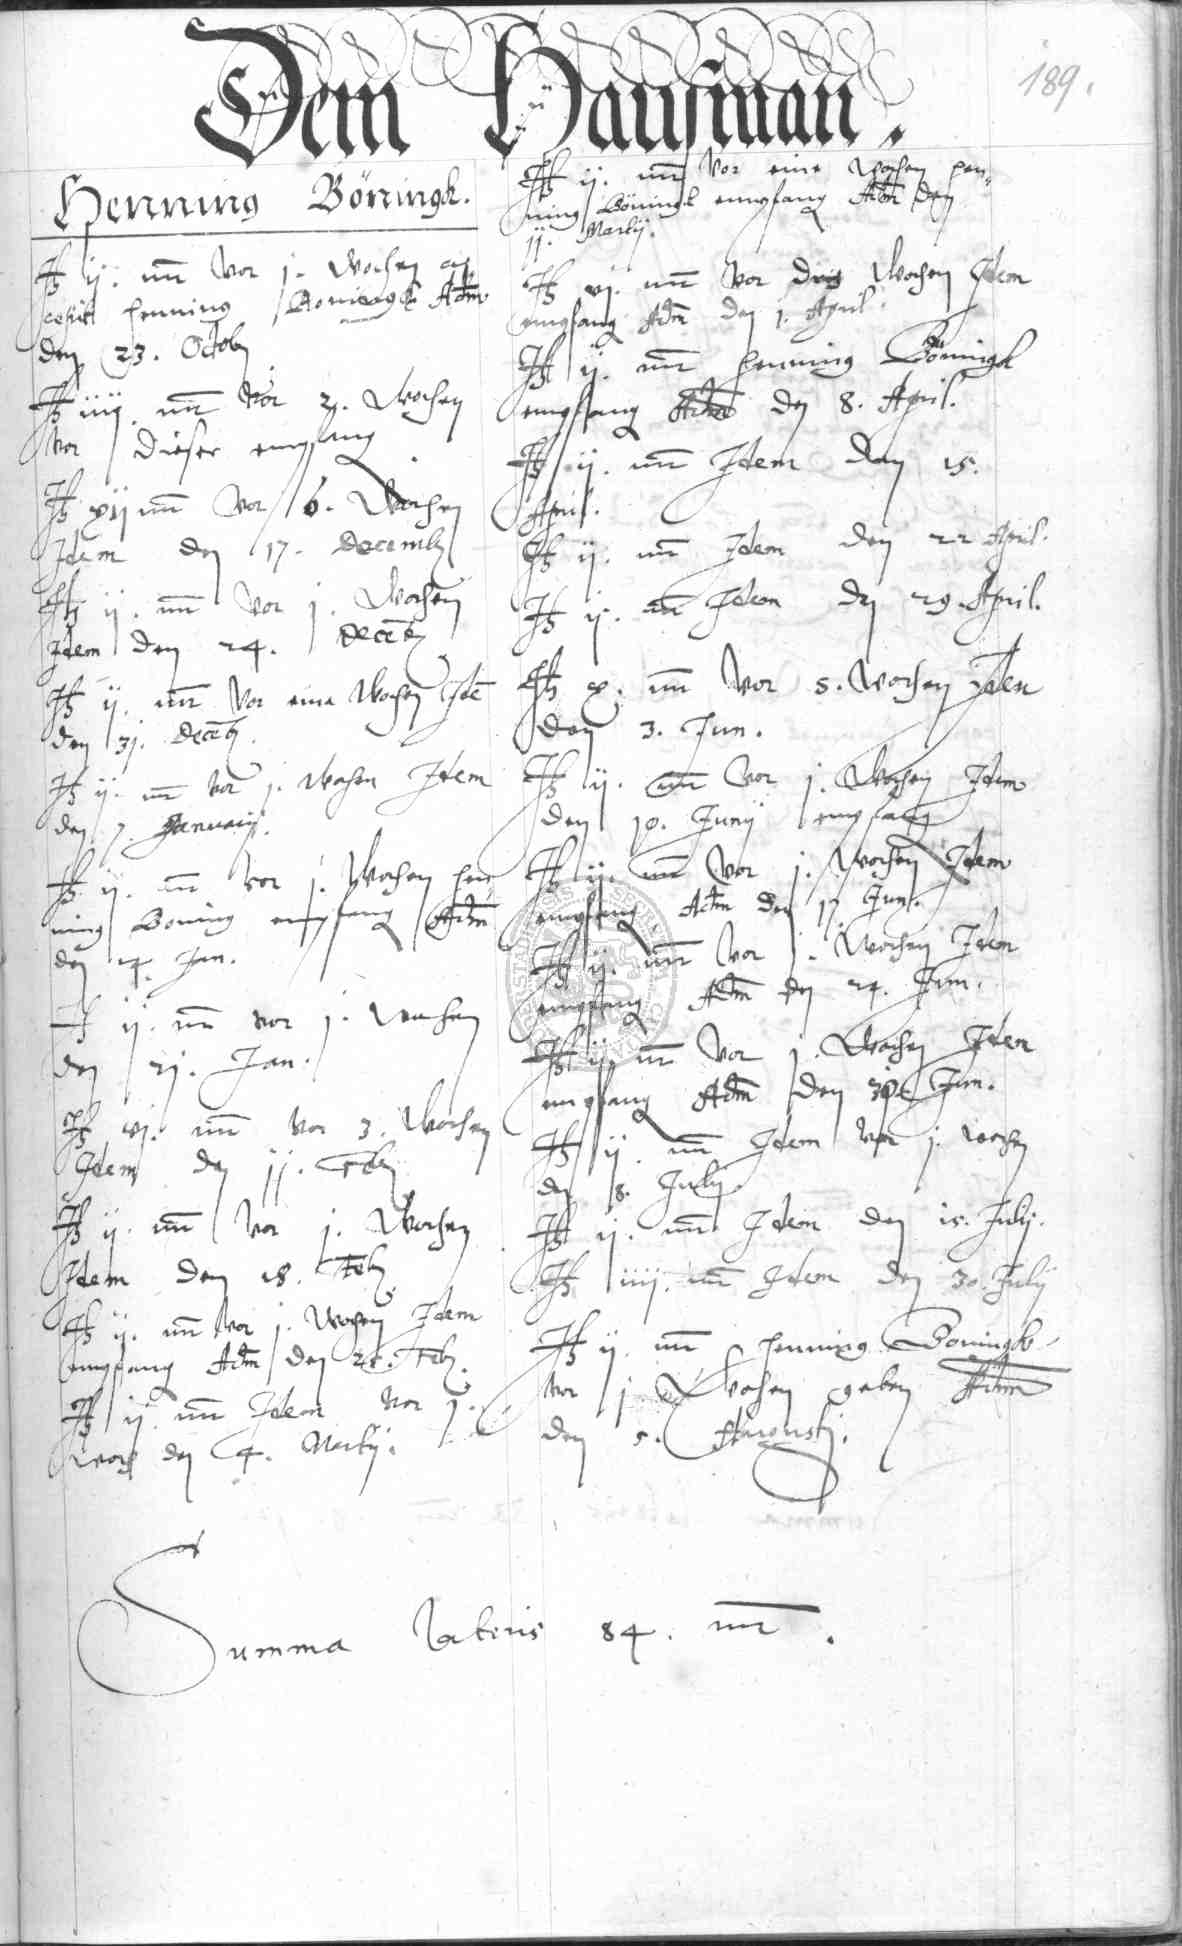 189.
Dem Hausman.
Henning Böningk.
It ij. mr vor j. Wochen
henning Boningk Actm
den 23. Octob
It iiij. mr vor 2. Wochen
vor dieser empfang
It xij mr vor 6. Wochen
Idem den 17. Decemb
It ij. mr vor j. Wochen
Idem den 24. Decēb
It ij. mr vor eine Wochen Idē
den 31. Decēb.
It ij. mr vor j. Wochen Idem
den 7. Januarij.
It ij. mr vor j. Wochen hen
ning Boning empfang Actm
den 14. Jan.
It ij. mr vor j. Wochen
den 21. Jan.
It vj. mr vor 3. Wochen
Idem den 11. Feb
It ij. mr vor j. Wochen
Idem den 18. Feb
It ij. mr vor j. Wochen Idem
empfang Actm den 25. Feb.
It ij. mr Idem vor j.
woch den 4. Martij.
It ij. mr vor eine Wochen hen-
ning Böningk empfang Actm den
11. Martij.
It vj. mr vor drey Wochen Idem
empfang Actm den 1. April.
It ij. mr henning Böningk
empfang Actm den 8. April.
It ij. mr Idem den 15.
April.
It ij. mr Idem den 22 April.
It ij. mr Idem den 29. April.
It x. mr vor 5. Wochen Idem
den 3. Jun.
It ij. mr vor j. Wochen Idem
den 10. Junij empfang
It ij. mr vor j. Wochen Idem
empfang Actm den 17 Jun.
It ij. mr vor j. Wochen Idem
empfang Actm den 24. Jun.
It ij. mr vor j. Wochen Idem
empfang Actm den Jun.
It ij. mr Idem vor j. wochen
den 8. Julij.
It ij. mr Idem den 15. Julij.
It iiij. mr Idem den 30. Julij
It ij. mr henning Boningk
vor j. Wochen geben Actm
den 5. Augustj.
Summa lateris 84. mr.